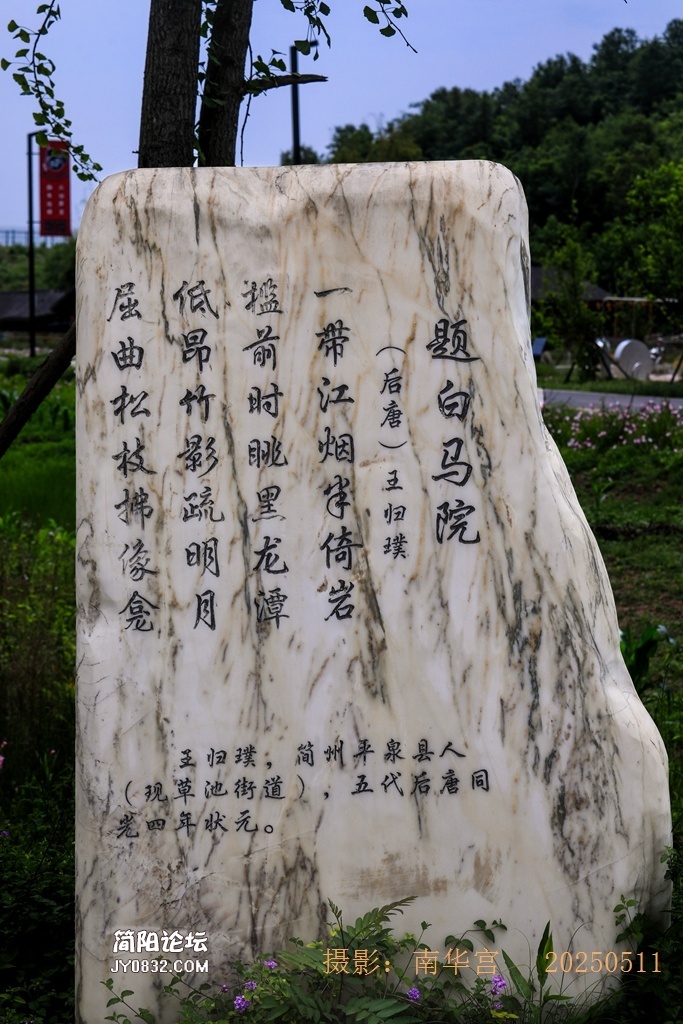 题白马院
（后唐）王归璞
一带江烟半倚岩
槛前时眺黑龙潭
低昂竹影疏明月
屈曲松枝拂像龛
王归璞，简州平泉县人
（现草池街道），五代后唐同
光四年状元。
简阳论坛
JY0832.COM
摄影：南华宫 20250511